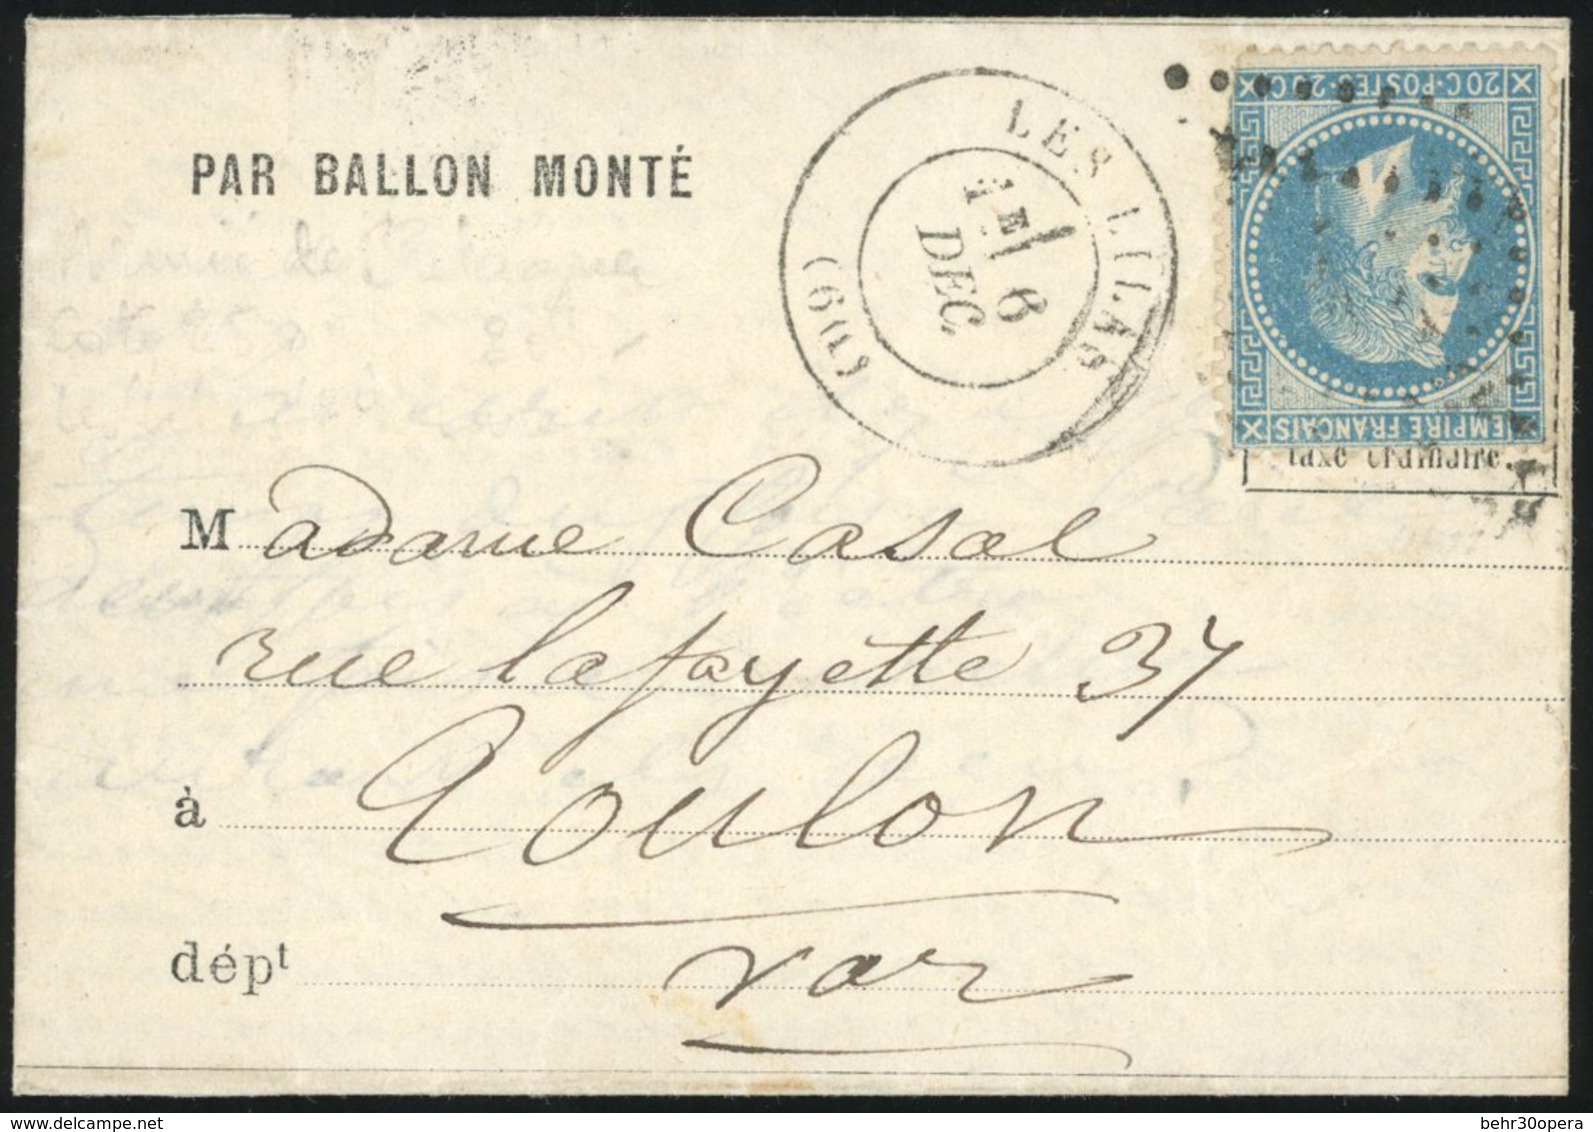 PAR BALLON MONTÉ
LES LILAS
1E
6
DEC.
(60)
20C·POSTES·20C
EMPIRE FRANÇAIS
taxe ordinaire
Madame Casal
rue lafayette 37
à Toulon
dépt Var
behr30opera